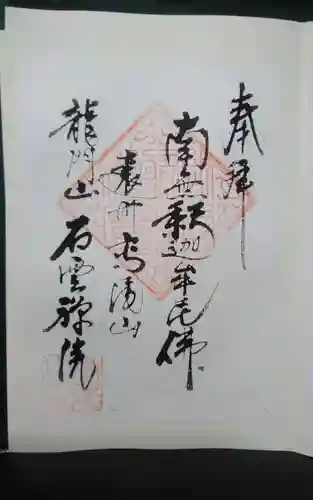 奉拝
南無釈迦牟尼佛
遠州高尾山
龍門山石雲禅院